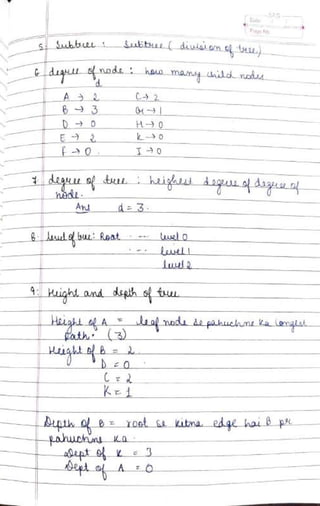 Date
Page No.
5. Subtree : Subtree ( division of tree.)
6 degree of node : how many child nodes
d
A → 2 C → 2
B → 3 G → 1
D → 0 H → 0
E → 2 K → 0
F → 0 I → 0
7 degree of tree : heighest degree of degree of
node.
Ans d = 3.
8. level of tree: Root -- level 0
-- level 1
level 2
9. Height and depth of tree
Height of A = leaf node se pahuchne ka longest
path. (3)
Height of B = 2
D = 0
C = 2
K = 1
Depth of B = root se kitne edge hai B pr
pahuchne ka
dept of K = 3
Dept of A = 0